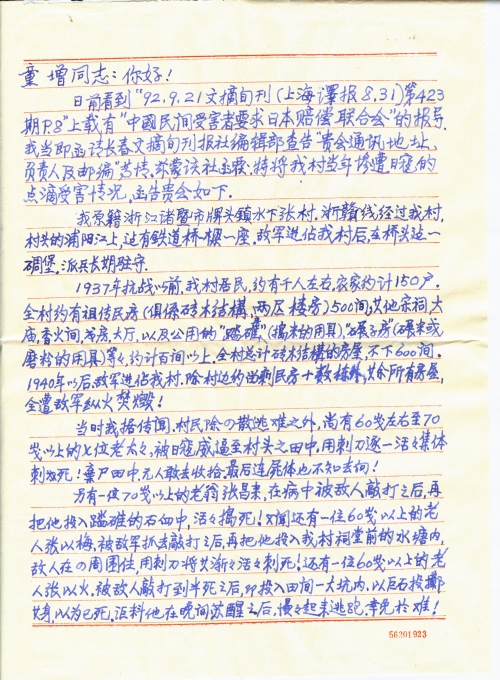 童增同志：你好！
日前看到“92.9.21文摘旬刊(上海译报8.31)第423
期P.8”上载有“中國民间受害者要求日本赔偿联合会”的报导.
我当即函请长春文摘旬刊报社编辑部查告“贵会通讯地址、
负责人及邮编”等情.亦蒙该社函覆.特将我村当年惨遭日寇的
点滴受害情况.函告贵会如下.
我原籍浙江诸暨市牌头镇水下张村.浙赣线经过我村,
村头的浦阳江上,还有铁道桥樑一座.敌军进佔我村后,在桥头建一
碉堡,派兵长期驻守.
1937年抗战以前,我村居民,约有千人左右,农家约计150户.
全村约有祖传民房(俱係砖木结構,两层楼房)500间,其他宗祠,大
庙,香火间,茶房,大厅,以及公用的“踏碓”(捣米的用具)“碾子房”(碾米或
磨粉的用具)等々,约计百间以上,全村总计砖木结構的房屋,不下600间.
1940年以后,敌军进佔我村,除村边约留剩民房十数栋外,其余所有房屋,
全遭敌军纵火焚燬!
当时我据传闻,村民除の散逃难之外,尚有60岁左右至70
岁以上的七位老太々,被日寇威逼至村头之田中,用刺刀逐一活々集体
刺死!棄尸田中,无人敢去收拾,最后连屍体也不知去向!
另有一位70岁以上的老翁张昌未,在病中被敌人敲打之后,再
把他投入踏碓的石臼中,活々捣死!又闻还有一位60岁以上的老
人张以梅,被敌军抓去敲打之后,再把他投入我村祠堂前的水塘内,
敌人在の周围住,用刺刀将其渐々活々刺死!还有一位60岁以上的老
人张以火,被敌人敲打到半死之后,即投入田间一大坑内,以巨石投掷
其身,以为已死,讵料他在晚间苏醒之后,慢々起来逃跑,幸免於难!
56201923